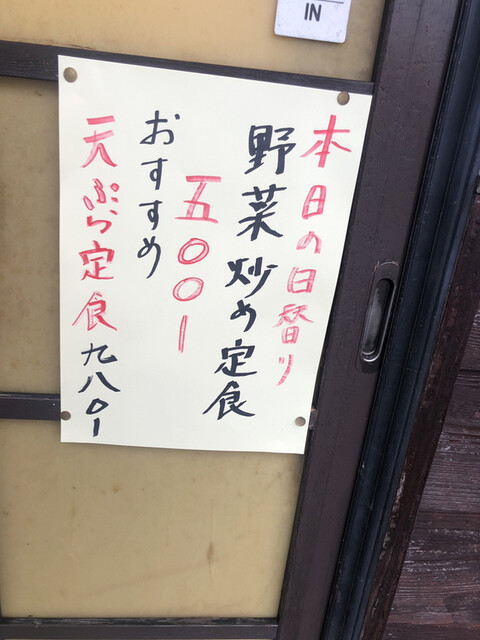 IN
本日の日替り
野菜炒め定食
五〇〇ー
おすすめ
天ぷら定食 九八〇ー